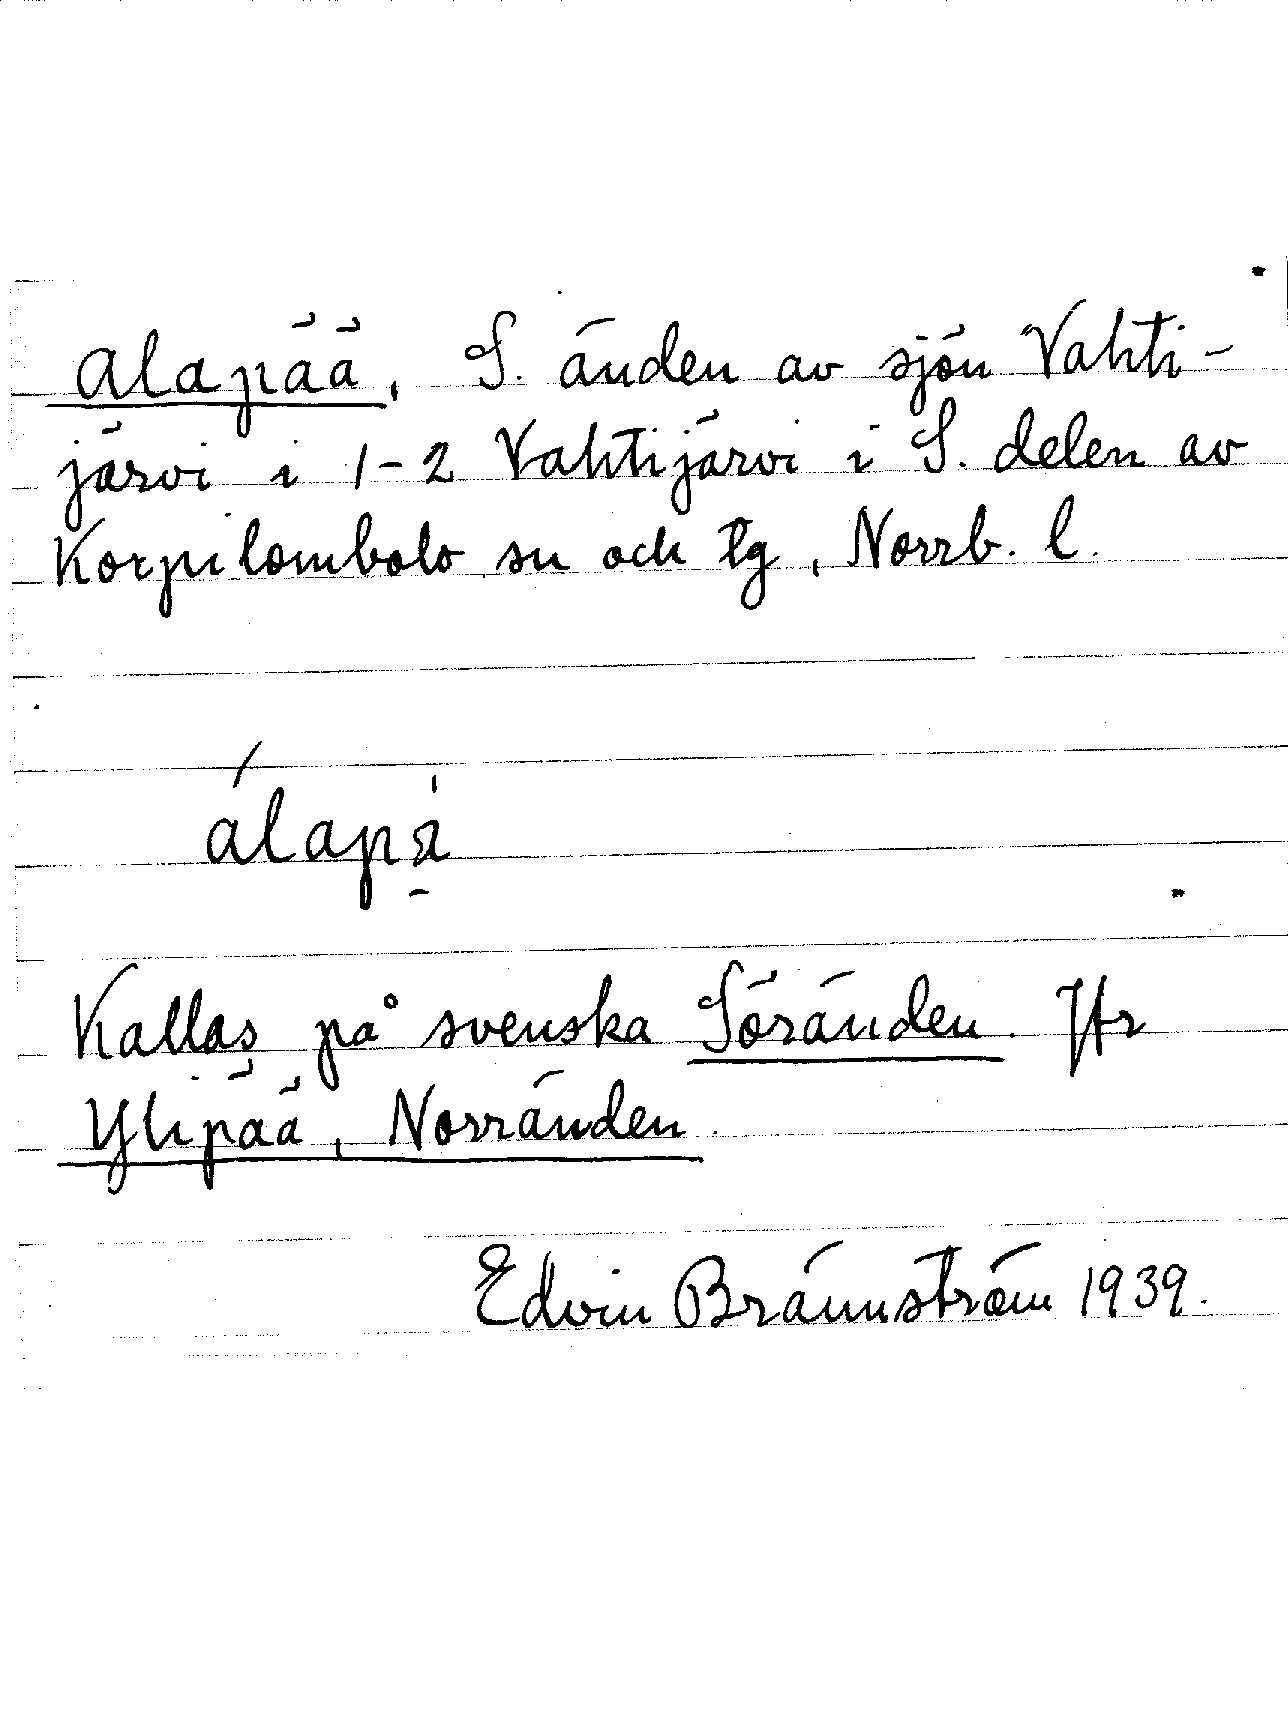 Alapää, S. änden av sjön Vahti-
järvi i 1-2 Vahtijärvi i S. delen av
Korpilombolo sn och tg, Norrb. l.
álapä̱
Kallas på svenska Söränden. Jfr
Ylipää, Norränden.
Edvin Brännström 1939.